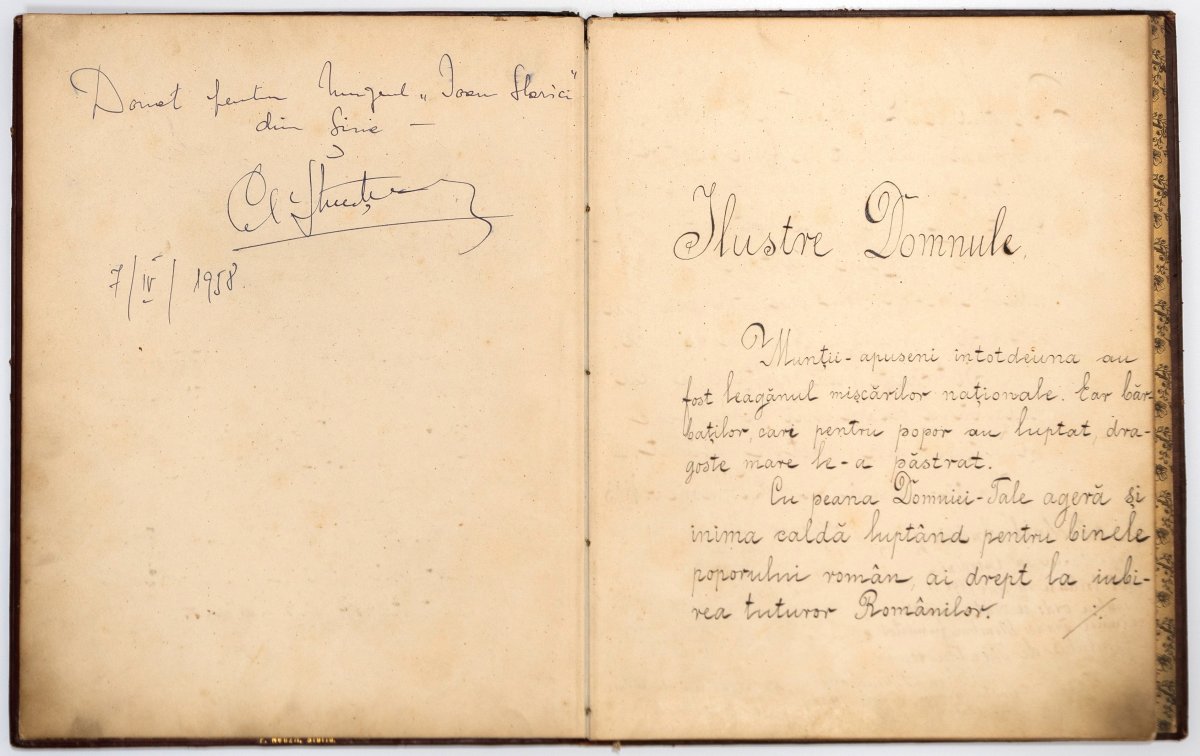 Donat pentru Muzeul „Ioan Slavici"
din Șiria —
7/IV/1958.
Ilustre Domnule,
Munții-apuseni intotdeiuna au
fost leagănul mișcărilor naționale. Ear băr-
baților, cari pentru popor au luptat, dra-
goste mare le-a păstrat.
Cu peana Domniei-Tale ageră și
inima caldă luptând pentru binele
poporului român, ai drept la iubi-
rea tuturor Românilor.
./.